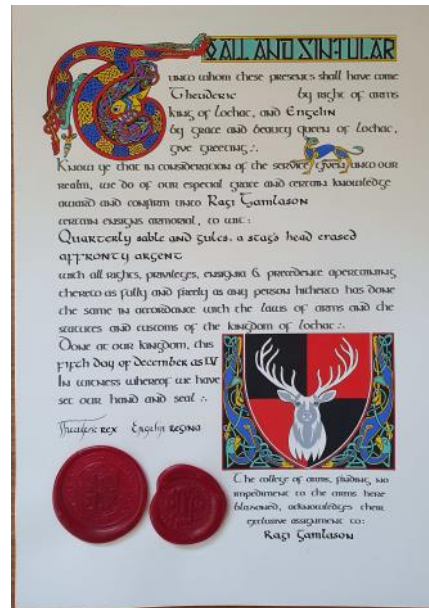 To all and singular
unto whom these presents shall have come
Theuderic by right of arms
king of Lochac, and Engelin
by grace and beauty queen of Lochac,
give greeting∴
Know ye that in consideration of the service given unto our
realm, we do of our especial grace and certain knowledge
award and confirm unto Ragi Gamlason
certain ensigns armorial, to wit:
Quarterly sable and gules, a stag's head erased
affronty argent
with all rights, privileges, ensignia & precedence apertaining
thereto as fully and freely as any person hitherto has done
the same in accordance with the laws of arms and the
statutes and customs of the kingdom of Lochac∴
Done at our kingdom, this
fifth day of december as LV
In witness whereof we have
set our hand and seal∴
Theuderic rex Engelin regina
The college of arms, finding no
impediment to the arms here
blazoned, acknowledges their
exclusive assignment to:
Ragi Gamlason